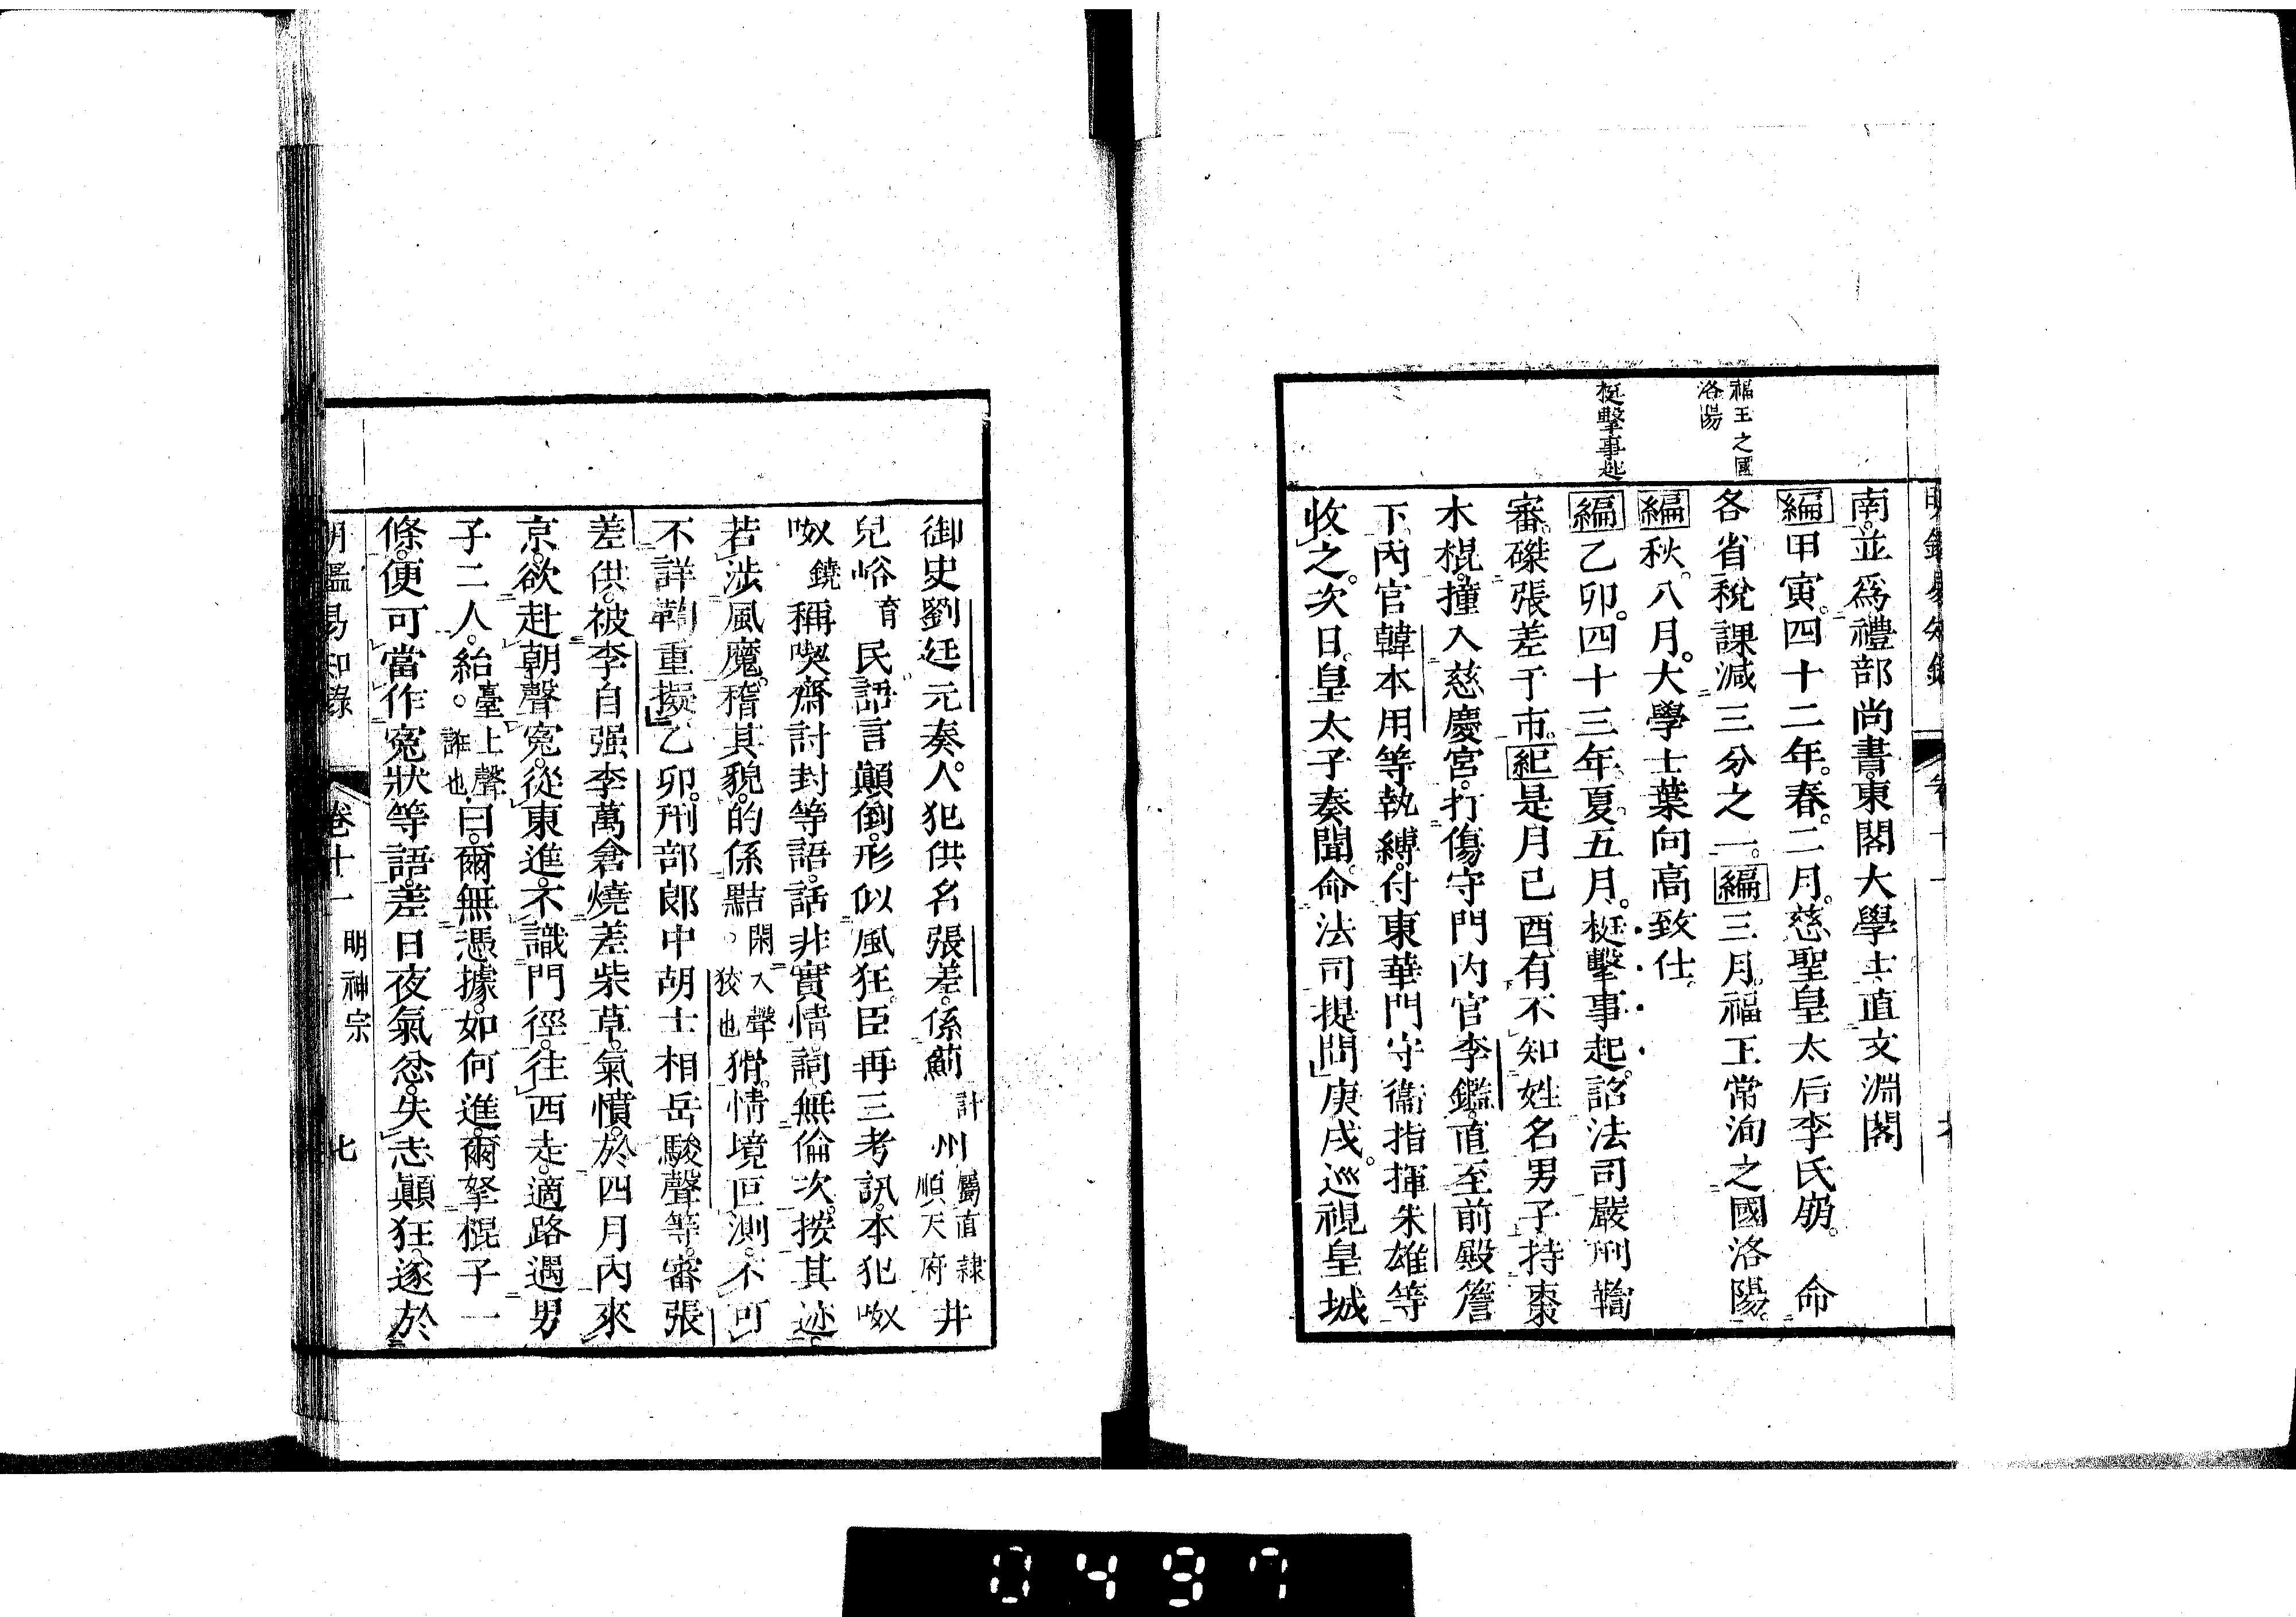 福王之國
洛陽
梃擊事起
南。並爲禮部尚書東閣大學士直文淵閣
編甲寅。四十二年。春。二月。慈聖皇太后李氏崩。命
各省稅課減三分之一。編三月。福王常洵之國洛陽。
編秋。八月。大學士葉向高致仕。
編乙卯。四十三年。夏。五月。梃擊事起。詔法司嚴刑鞫
審。磔張差于市。紀是月己酉有不知姓名男子持棗
木棍。撞入慈慶宮。打傷守門內官李鑑。直至前殿簷
下。內官韓本用等執縛。付東華門守衞指揮朱雄等
收之。次日。皇太子奏聞。命法司提問。庚戌。巡視皇城
御史劉廷元奏。人犯供名張差。係薊計州屬直隸順天府井
兒峪育民。語言顛倒。形似風狂。臣再三考訊。本犯呶
呶鐃稱喫齋討封等語。話非實情。詞無倫次。按其迹。
若涉風魔。稽其貌。的係黠閑入聲。狡也猾。情境叵測。不可
不詳鞫重擬。乙卯。刑部郞中胡士相岳駿聲等。審張
差供。被李自强李萬倉燒差柴草。氣憤。於四月內來
京。欲赴朝聲寃。從東進。不識門徑。往西走。適路遇男
子二人。紿臺上聲。誑也曰。爾無憑據。如何進。爾拏棍子一
條。便可當作寃狀等語。差日夜氣忿。失志顛狂。遂於
明鑑易知錄 卷十一 明神宗 七
0497